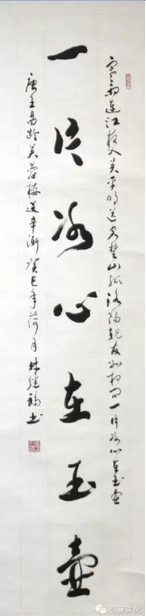 寒雨连江夜入吴平明送客楚山孤洛阳亲友如相问一片冰心在玉壶
一片冰心在玉壶
唐王昌龄芙蓉楼送辛渐癸巳年荷月林繼錫书